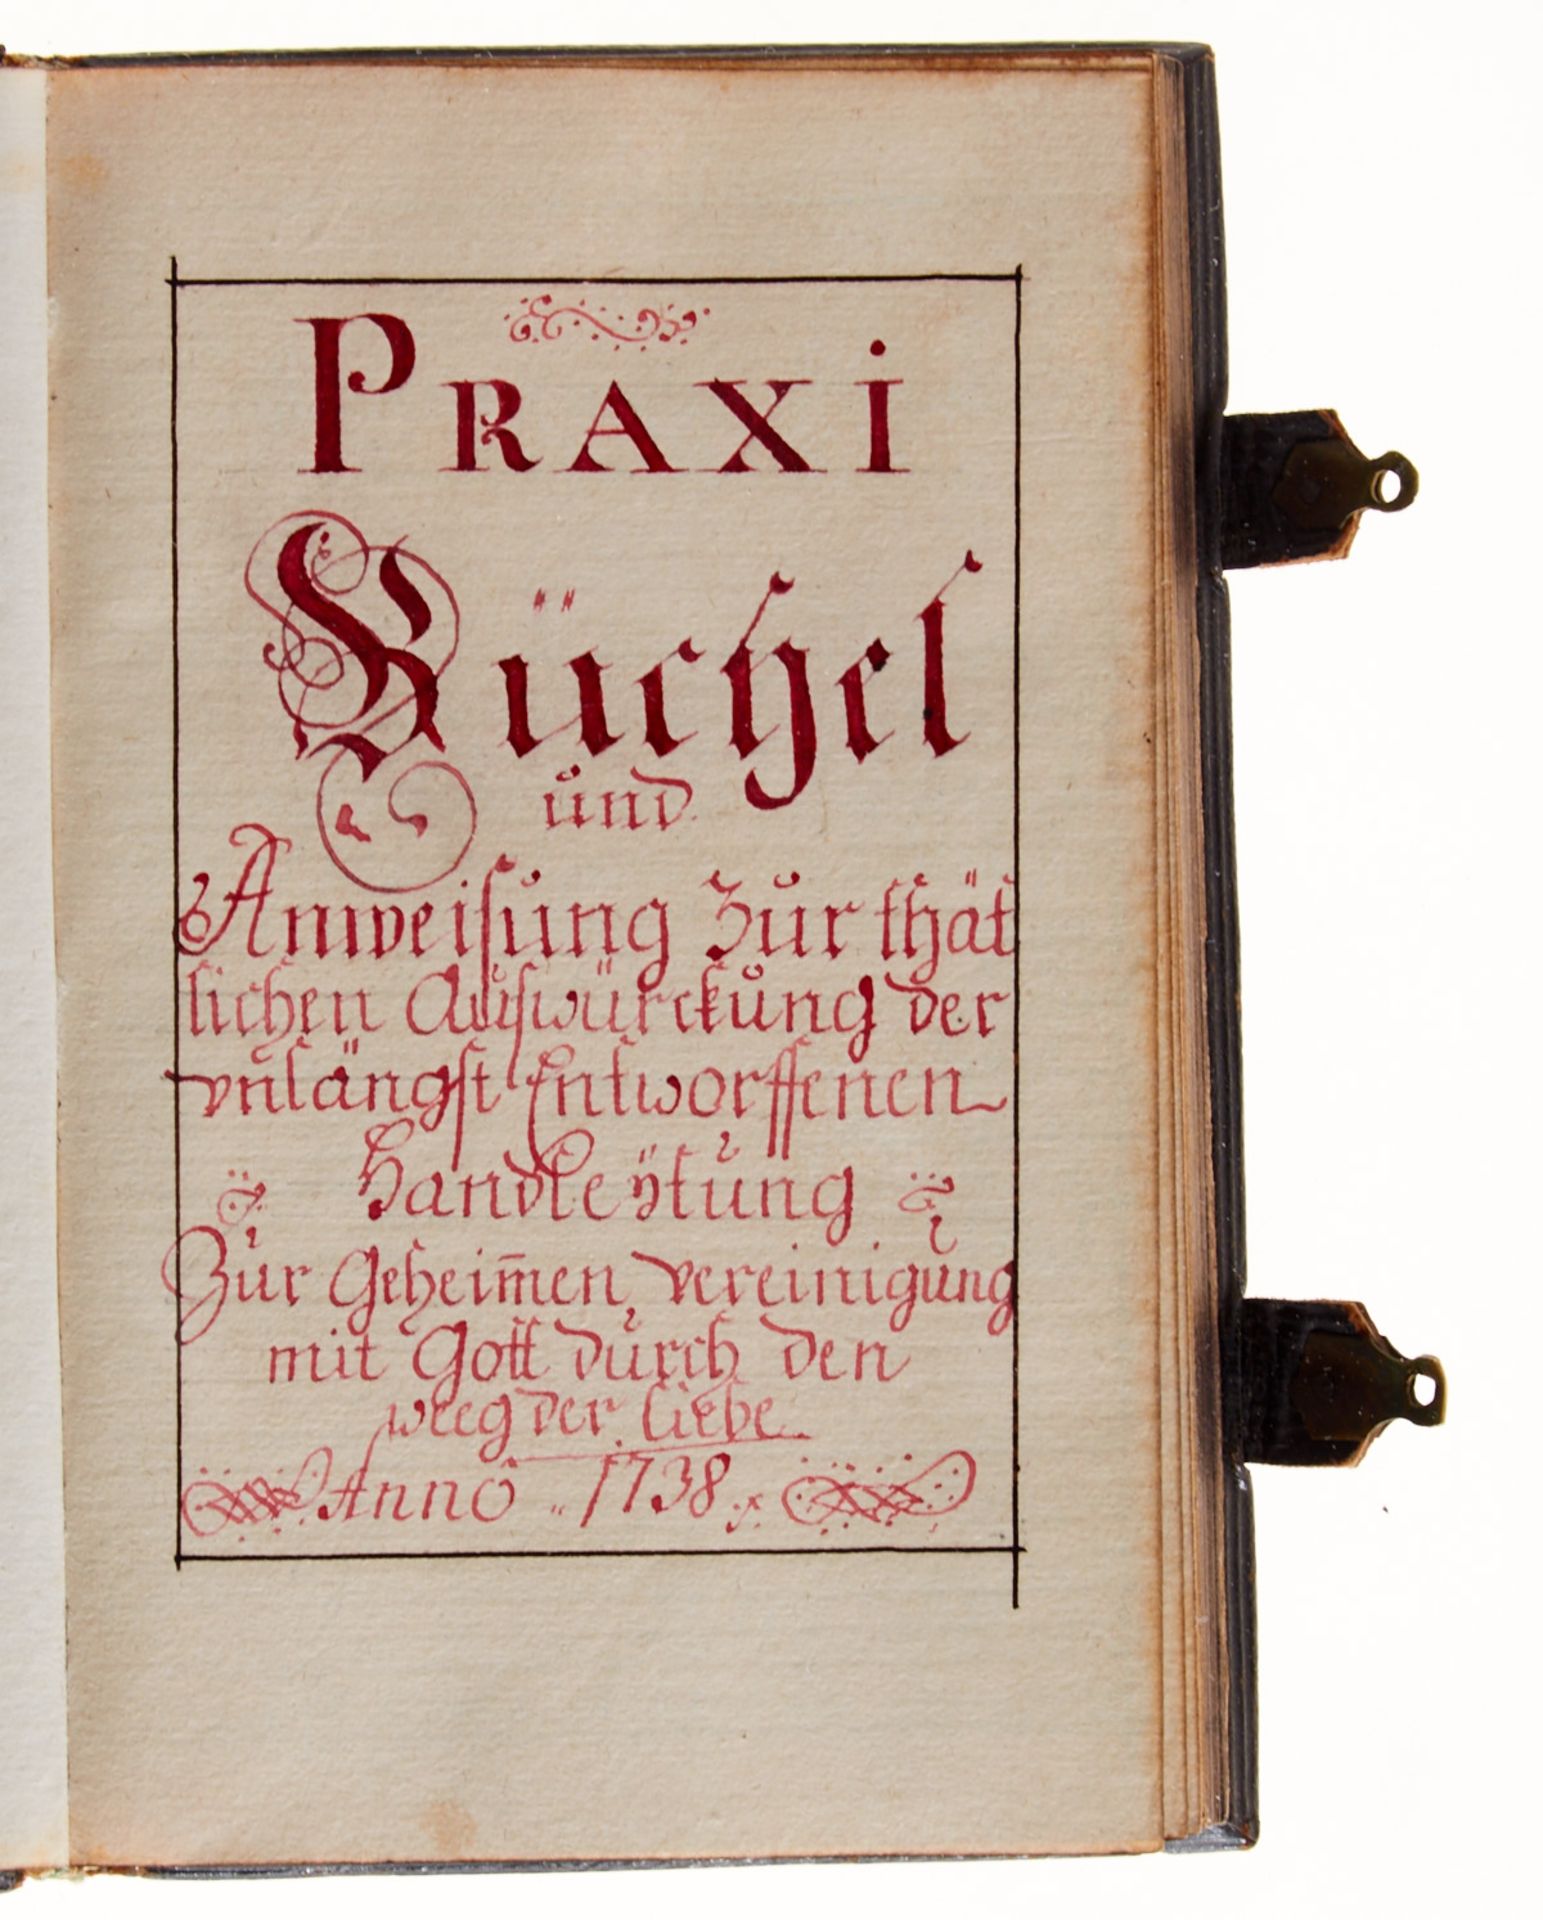 PRAXi
Büchel
und
Anweisung Zur thät
lichen Auswürckung der
vnlängst Entworffenen
Handleÿtung
Zur Geheim̅en vereinigung
mit Gott durch den
weeg der Liebe
Anno 1738.